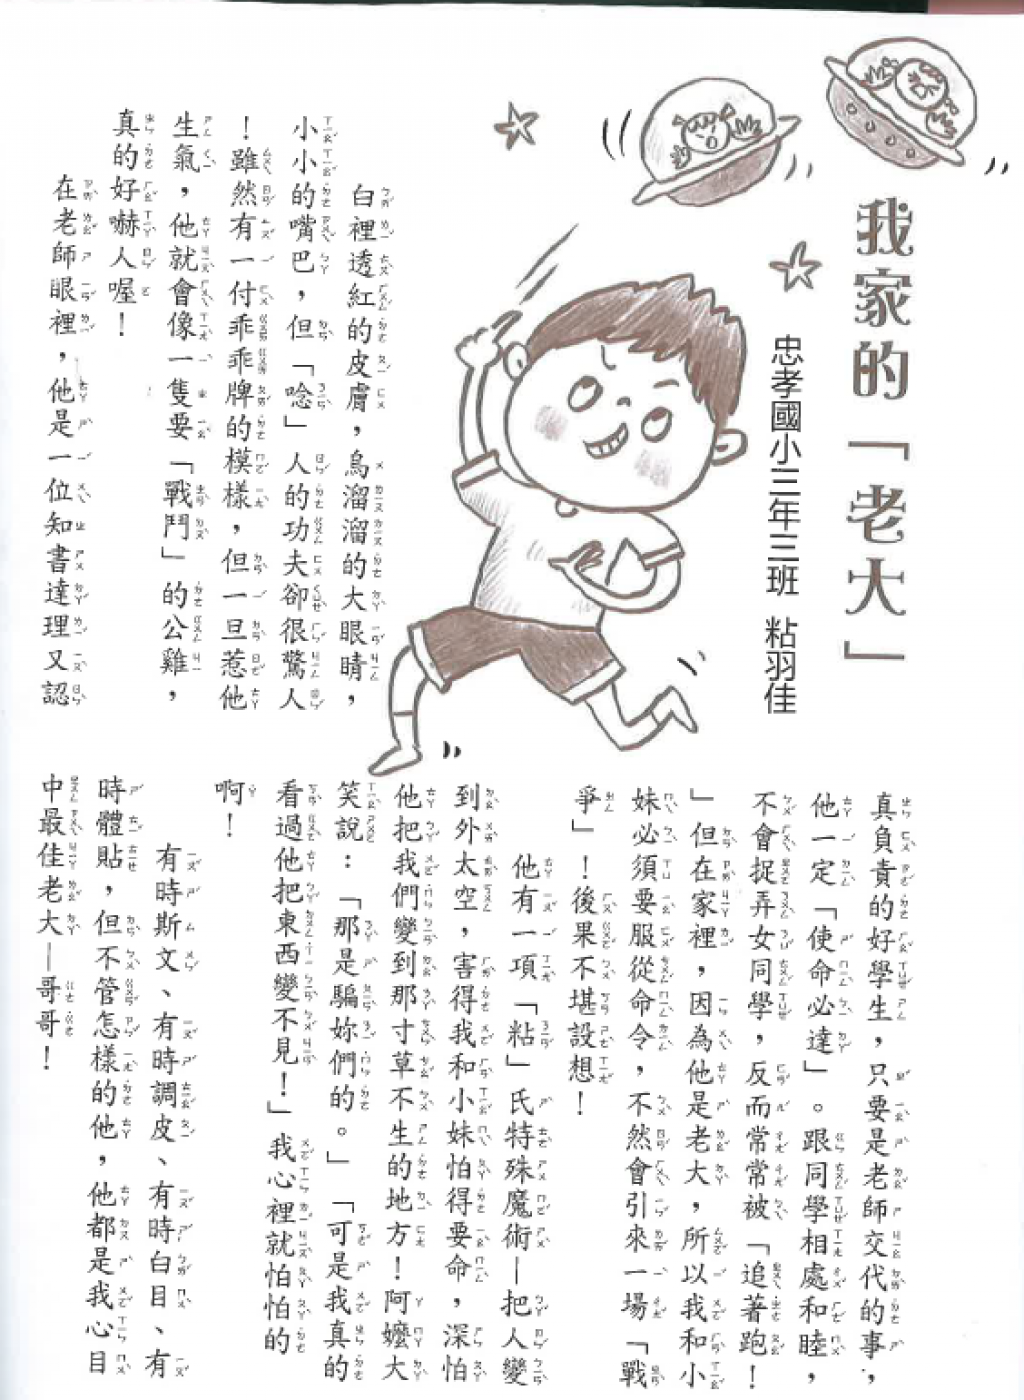 我家的「老大」
忠孝國小三年三班 粘羽佳
白裡透紅的皮膚，烏溜溜的大眼睛，
小小的嘴巴，但「唸」人的功夫卻很驚人
！雖然有一付乖乖牌的模樣，但一旦惹他
生氣，他就會像一隻要「戰鬥」的公雞，
真的好嚇人喔！
在老師眼裡，他是一位知書達理又認
真負責的好學生，只要是老師交代的事，
他一定「使命必達」。跟同學相處和睦，
不會捉弄女同學，反而常常被「追著跑！
」但在家裡，因為他是老大，所以我和小
妹必須要服從命令，不然會引來一場「戰
爭」！後果不堪設想！
他有一項「粘」氏特殊魔術—把人變
到外太空，害得我和小妹怕得要命，深怕
他把我們變到那寸草不生的地方！阿嬤大
笑說：「那是騙妳們的。」「可是我真的
看過他把東西變不見！」我心裡就怕怕的
啊！
有時斯文、有時調皮、有時白目、有
時體貼，但不管怎樣的他，他都是我心目
中最佳老大—哥哥！